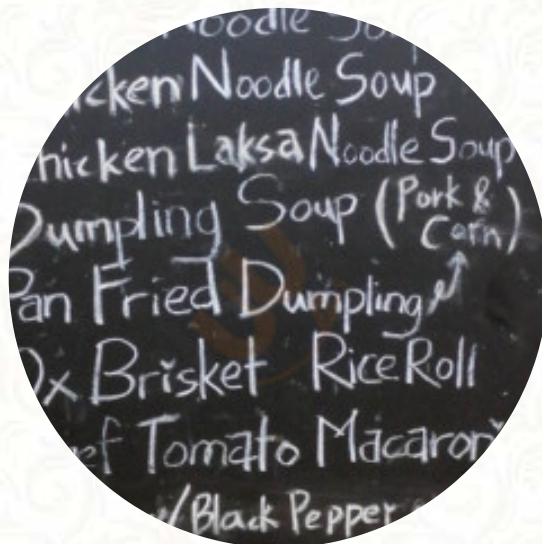 Noodle Soup
icken Noodle Soup
hicken Laksa Noodle Soup
Dumpling Soup (Pork & Corn)
Pan Fried Dumpling
Ox Brisket Rice Roll
ef Tomato Macaroni
w/Black Pepper